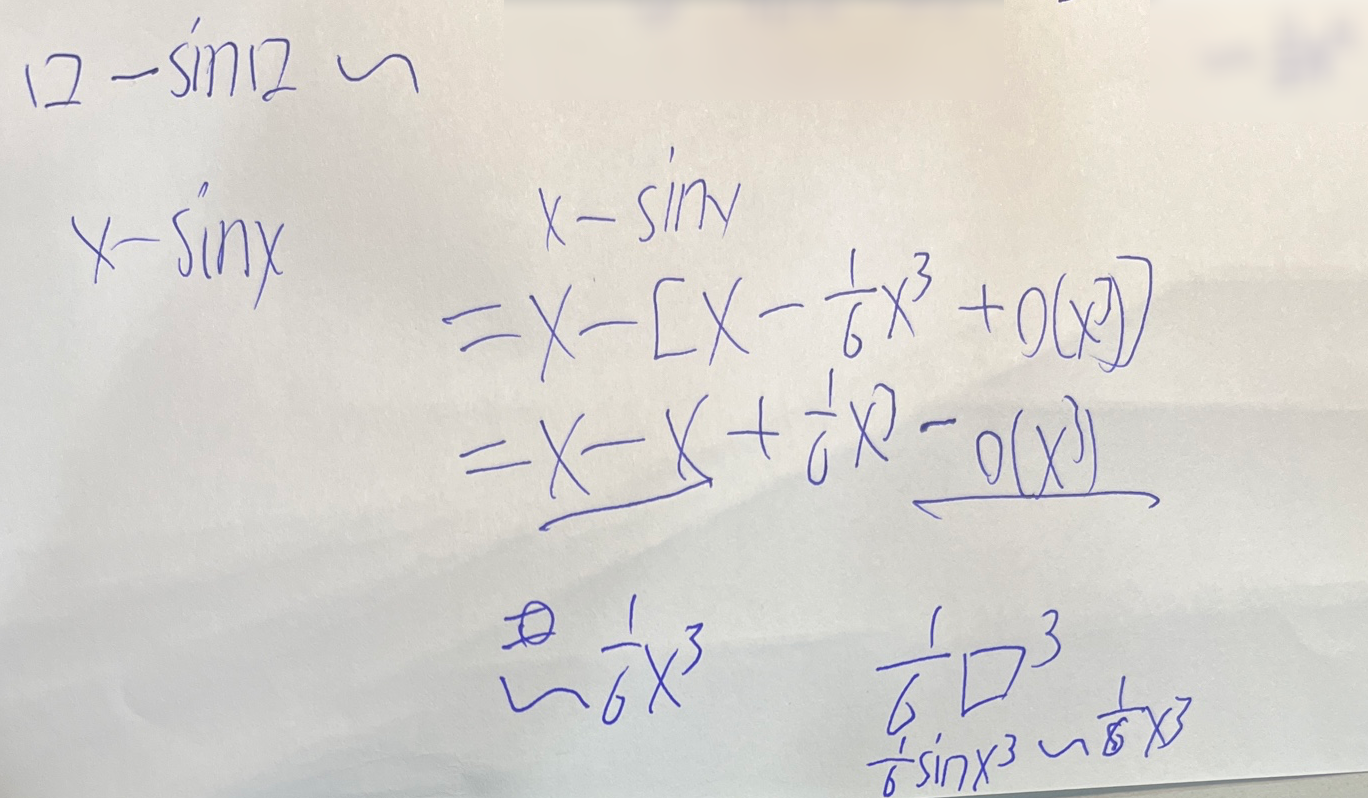 □ - sin□ ~
x - sinx
x - sinx
= x - [x - 1/6 x³ + o(x³)]
= x - x + 1/6 x³ - o(x³)
~ 1/6 x³
1/6 □³
1/6 sinx³ ~ 1/6 x³